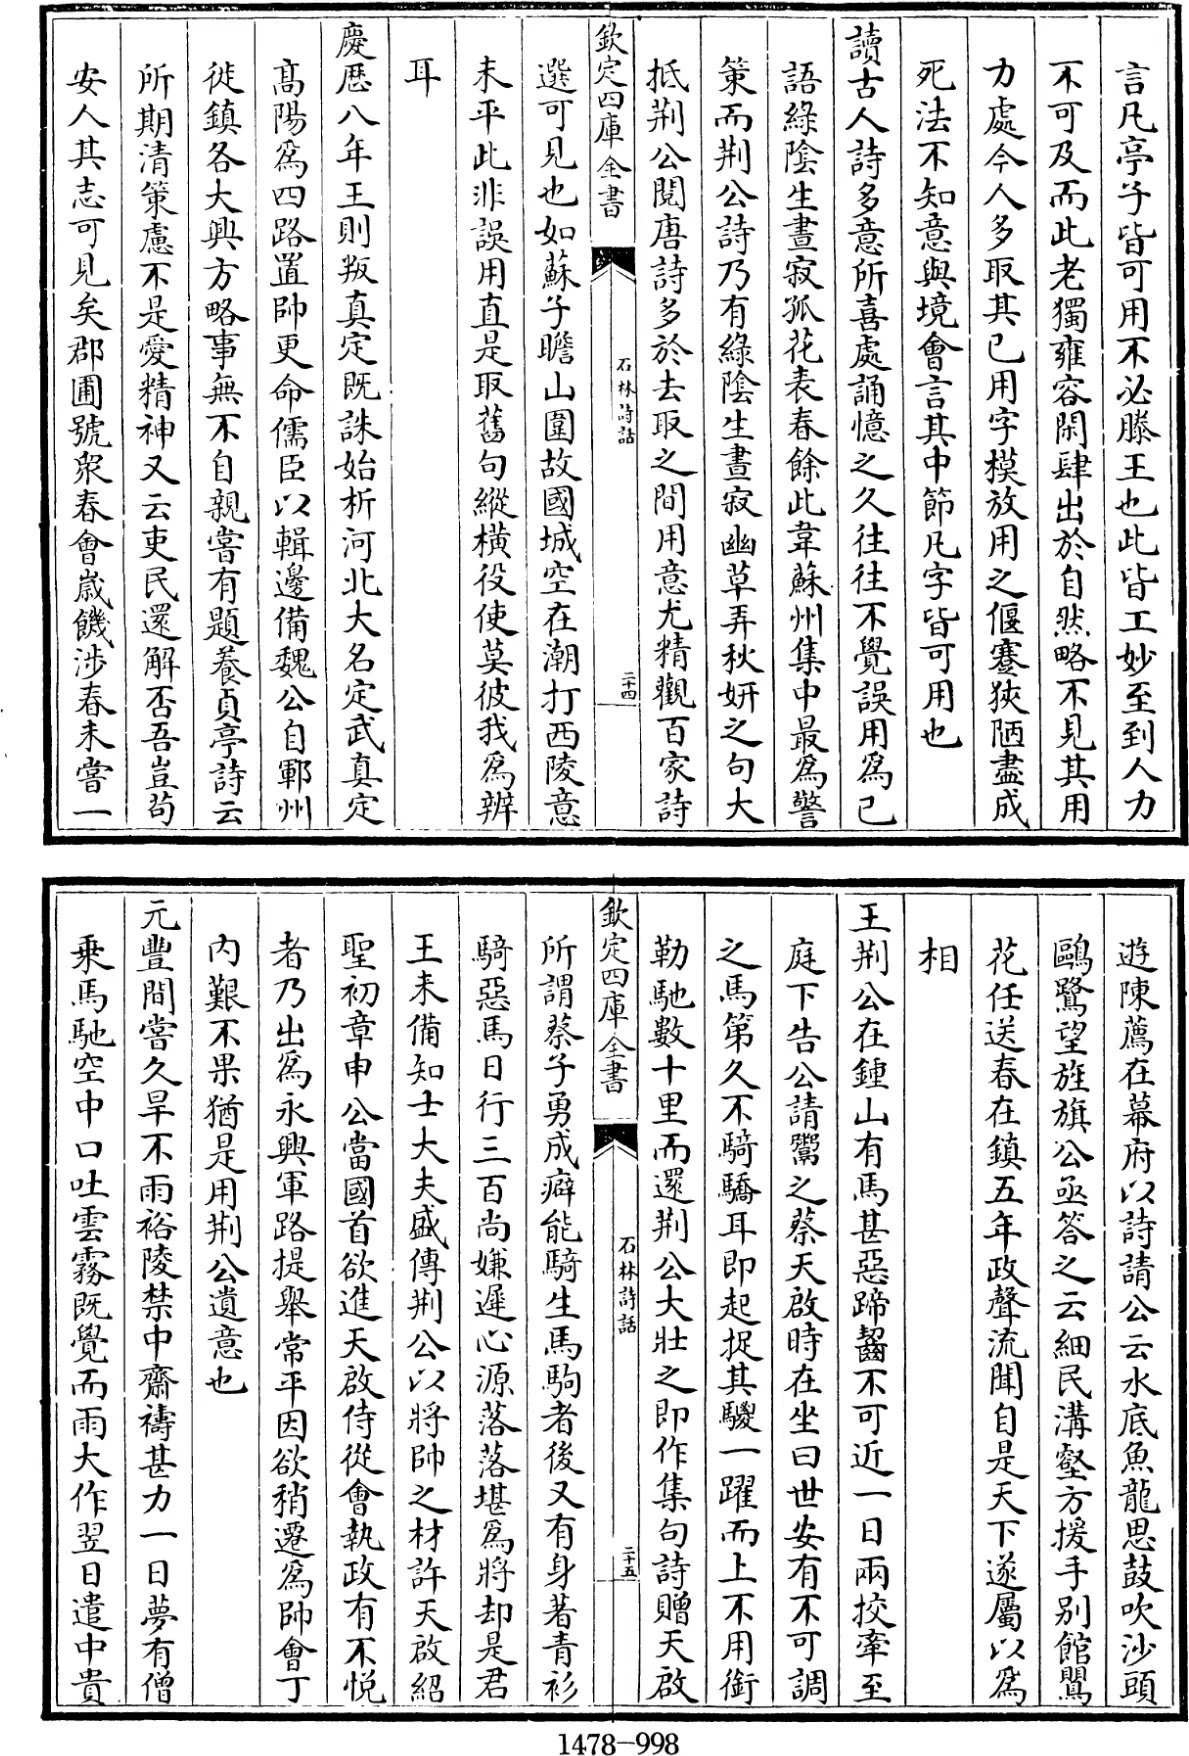 言凡亭子皆可用不必滕王也此皆工妙至到人力
不可及而此老獨雍容閒肆出於自然略不見其用
力處今人多取其已用字模放用之偃蹇狹陋盡成
死法不知意與境會言其中節凡字皆可用也
讀古人詩多意所喜處誦憶之久往往不覺誤用為己
語綠陰生晝寂孤花表春餘此韋蘇州集中最為警
策而荆公詩乃有綠陰生晝寂幽草弄秋妍之句大
抵荆公閱唐詩多於去取之間用意尤精觀百家詩
欽定四庫全書
石林詩話
二十四
選可見也如蘇子瞻山圍故國城空在潮打西陵意
未平此非誤用直是取舊句縱橫役使莫彼我為辨
耳
慶厯八年王則叛真定既誅始析河北大名定武真定
高陽為四路置帥更命儒臣以輯邊備魏公自鄆州
徙鎮各大興方略事無不自親嘗有題養貞亭詩云
所期清策慮不是愛精神又云吏民還解否吾豈苟
安人其志可見矣郡圃號衆春會歳饑涉春未嘗一
遊陳薦在幕府以詩請公云水底魚龍思鼓吹沙頭
鷗鷺望旌旗公亟答之云細民溝壑方援手别館鶯
花任送春在鎮五年政聲流聞自是天下遂屬以為
相
王荆公在鍾山有馬甚惡蹄齧不可近一日兩挍牽至
庭下告公請鬻之蔡天啟時在坐曰世安有不可調
之馬第久不騎驕耳即起捉其騣一躍而上不用銜
勒馳數十里而還荆公大壯之即作集句詩贈天啟
欽定四庫全書
石林詩話
二十五
所謂蔡子勇成癖能騎生馬駒者後又有身著青衫
騎惡馬日行三百尚嫌遲心源落落堪為將却是君
王未備知士大夫盛傳荆公以將帥之材許天啟紹
聖初章申公當國首欲進天啟侍從會執政有不悦
者乃出為永興軍路提舉常平因欲稍遷為帥會丁
内艱不果猶是用荆公遺意也
元豐間嘗久旱不雨裕陵禁中齋禱甚力一日夢有僧
乗馬馳空中口吐雲霧既覺而雨大作翌日遣中貴
1478-998